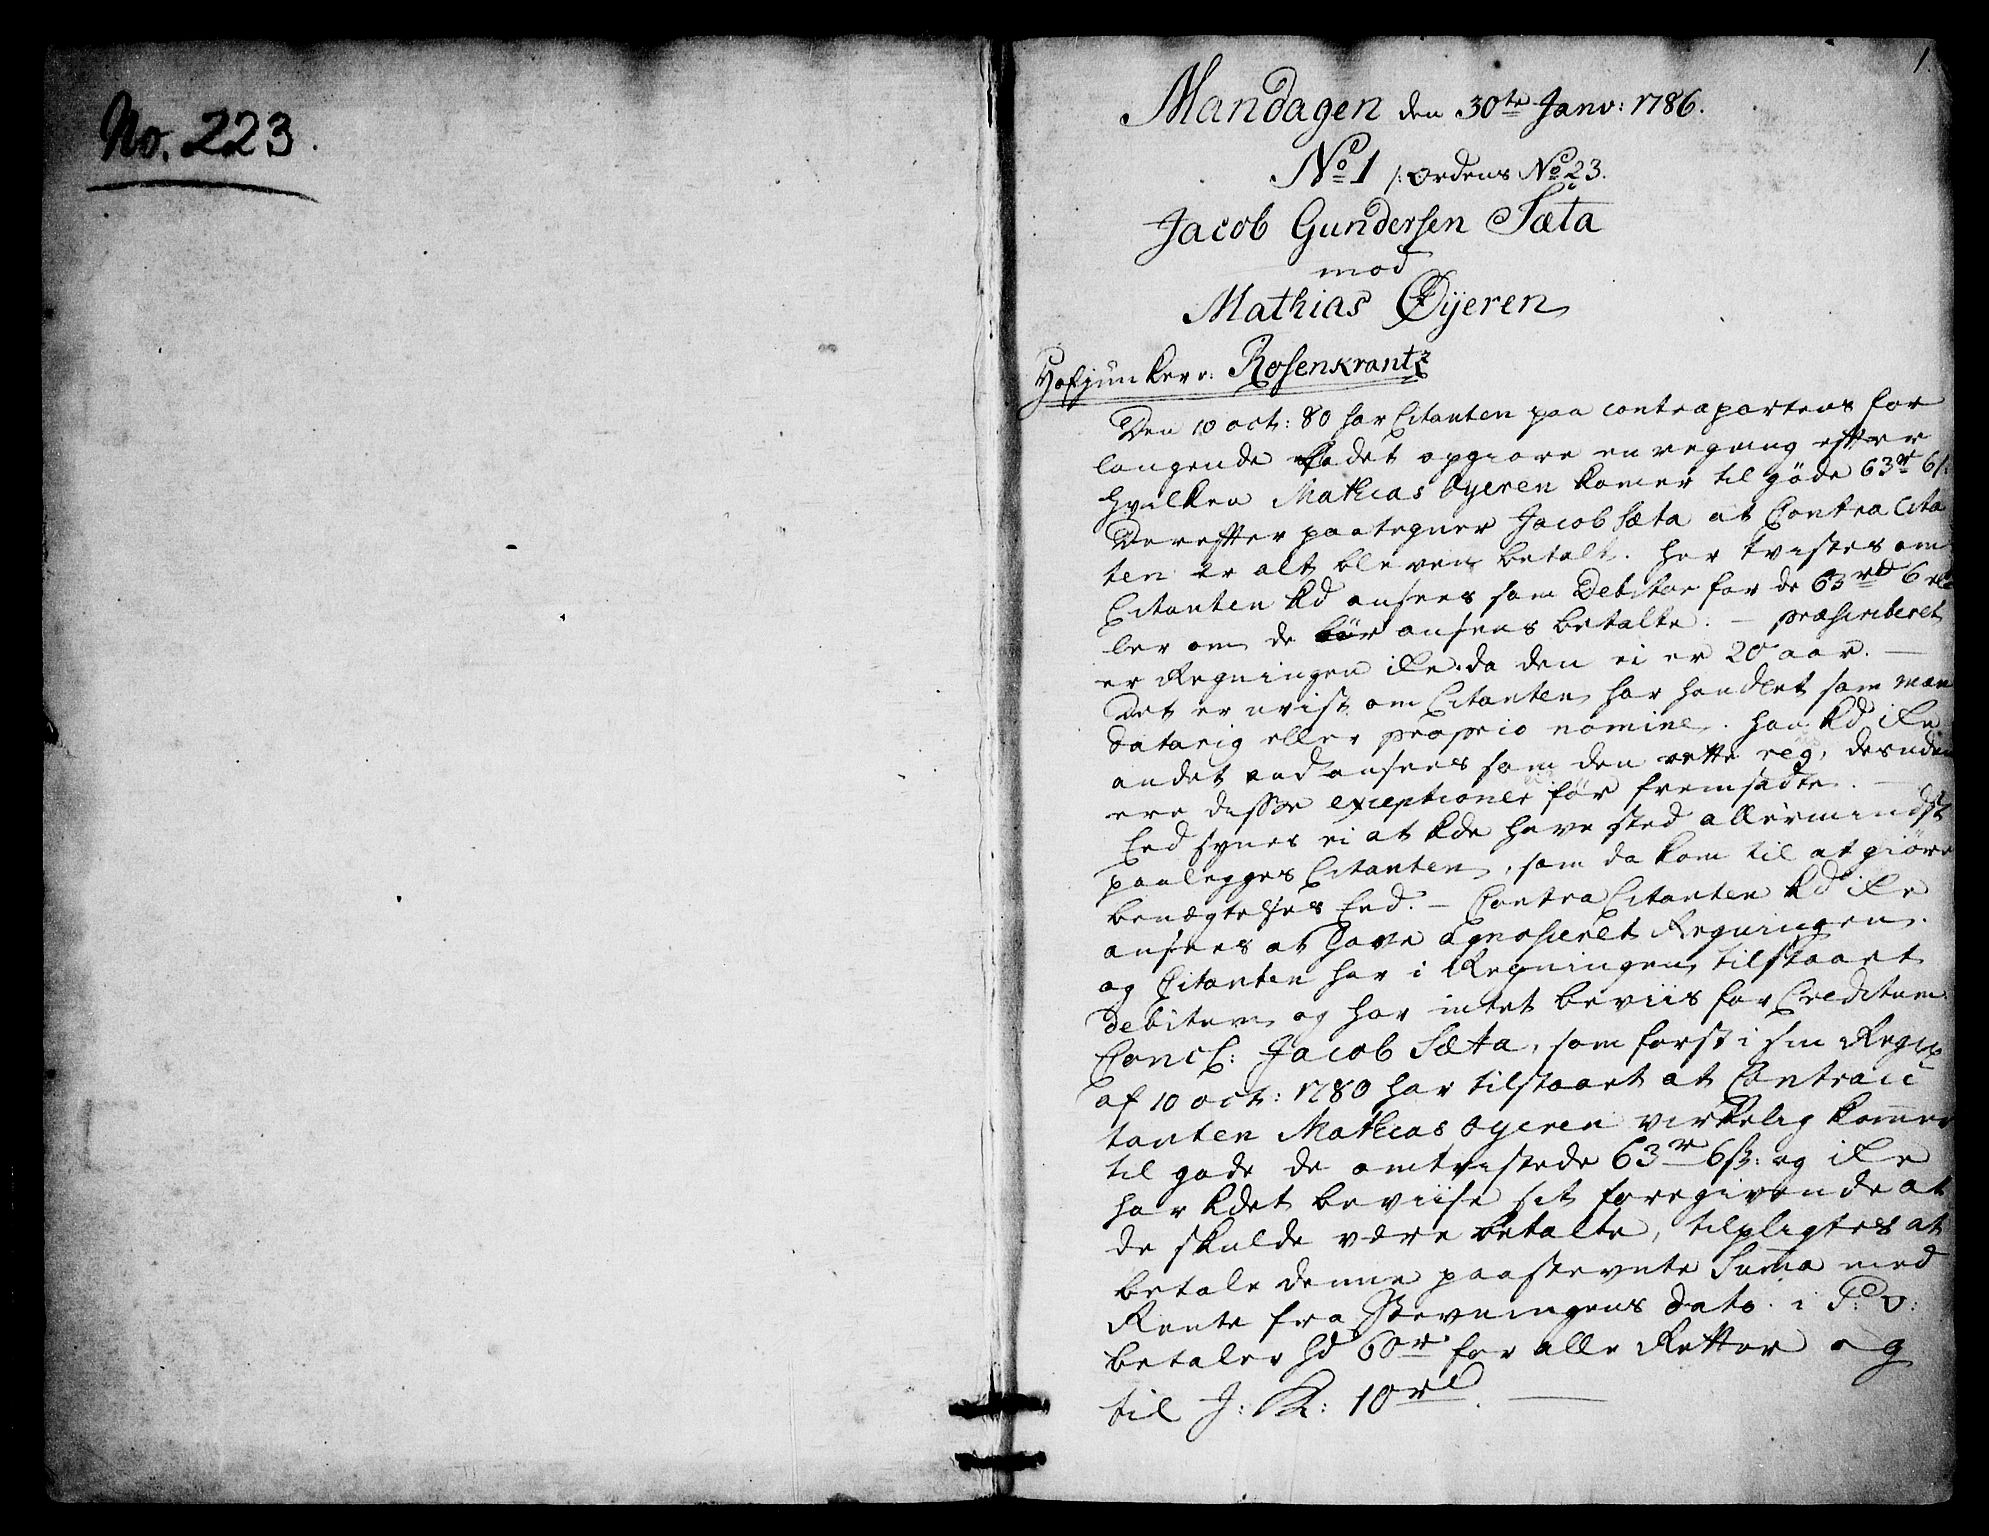 No. 223.
1.
Mandagen den 30te Janv: 1786.
No 1 /: Ordens No 23.
Jacob Gundersen Sæta
mod
Mathias Öyeren
Hofjunker v: Rosenkrantz
Den 10 oct: 80 har Citanten paa contrapartens for
langende ladet opgiöre en regning efter
hvilken Mathias Öyeren komer til göde 63 r 6 s
Derefter paategner Jacob Sæta at Contra Cita
ten er alt bleven betalt. her tvistes om
Citanten kd ansees som Debitor for de 63 rd 6 el
ler om de bör ansees betalte. – præscriberet
er Regningen ike da den ei er 20 aar. –
Det er uvist om Citanten har handlet som man
datarig eller proprio nomine. han kd ike
andet end ansees som den rette reg, desuden
ere disse exceptioner för fremsadte. –
Eed synes ei at kde have sted allermindst
paalegges Citanten, som da kom til at giöre
benægtelses Eed. – Contra Citanten kd ike
ansees at have agnosceret Regningen.
og Citanten har i Regningen tilstaaet
debitum og har intet beviis for Creditum.
Concl: Jacob Sæta, som först i sin Regn
af 10 oct: 1780 har tilstaaet at Contraci
tanten Mathias Öyeren virkelig kommer
til gode de omtvistede 63 r 6 s: og ike
har kdet beviise sit foregivende at
de skulde være betalte, tilpligtes at
betale denne paastevnte Suma med
Rente fra Stevningens dato. i P: O:
betaler hd 60 r for alle Retter og
til J: K: 10 rd. –